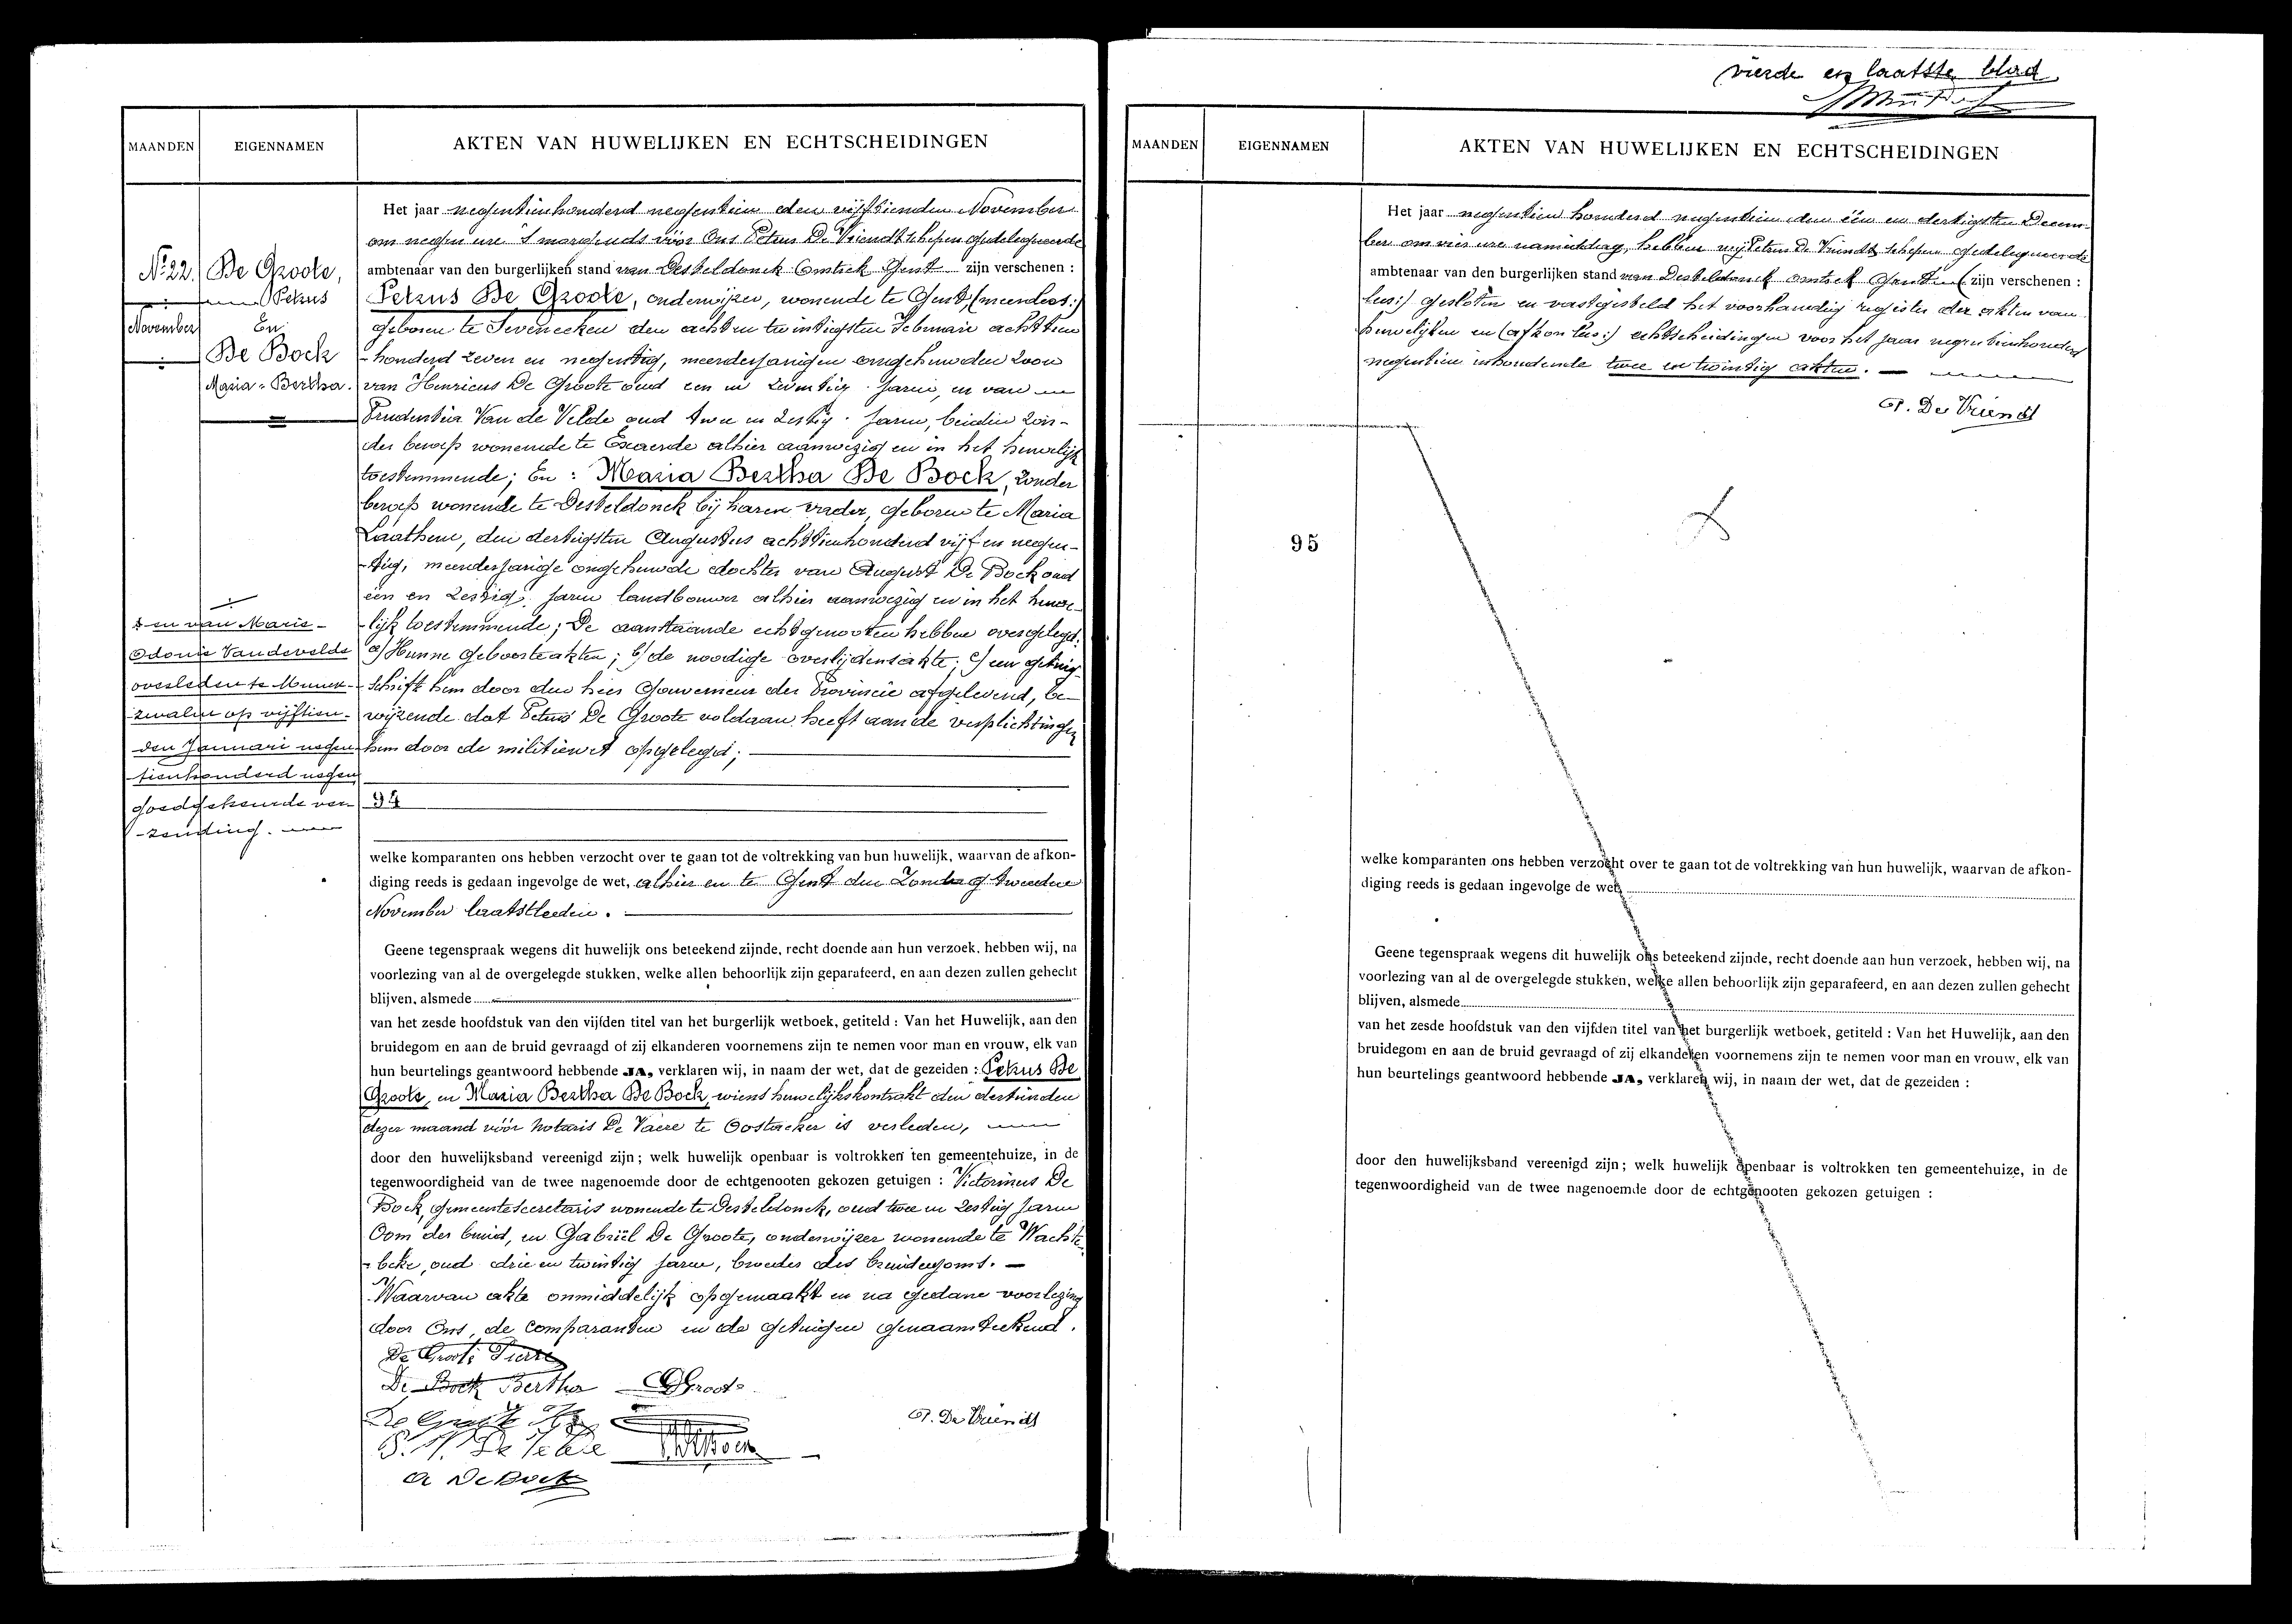 MAANDEN
EIGENNAMEN
AKTEN VAN HUWELIJKEN EN ECHTSCHEIDINGEN
N° 22.
De Groote,
Petrus
November
En
De Bock
Maria-Bertha.
Het jaar negentienhonderd negentien den vijftienden November
om negen ure 's morgends vóór Ons Petrus De Vriendt schepen gedelegueerde
ambtenaar van den burgerlijken stand van Desteldonck Omtrek Gent zijn verschenen :
Petrus De Groote, onderwijzer, wonende te Gent,
geboren te Seveneeken den acht en twintigsten Februarie achttien
-honderd zeven en negentig, meerderjarigen ongehuwden zoon
van Henricus De Groote oud een en jaren, en van
Prudentia Van de Velde oud twee en zestig jaren, beiden zon-
der beroep wonende te Exaerde alhier aanwezig en in het huwelijk
toestemmende; En : Maria Bertha De Bock, zonder
beroep wonende te Desteldonck bij haren vader, geboren te Maria
Laathem, den dertigsten Augustus achttienhonderd vijf en negen-
-tig, meerderjarige ongehuwde dochter van August De Bock oud
één en zestig jaren landbouwer alhier aanwezig en in het huwe-
-lijk toestemmende; De aanstaande echtgenooten hebben overgelegd:
a) Hunne geboorteakten; b) de noodige overlijdensakte; c) een getuig-
schrift hem door den heer Gouverneur der Provincie afgeleverd, be-
wijzende dat Petrus De Groote voldaan heeft aan de verplichtingen
hem door de militiewet opgelegd;
en van Marie-
Odonie Vandevelde
overleden te Munck-
zwalm op vijftien-
den Januari negen
tienhonderd negen
goedgekeurde ver-
-zending.
94
welke komparanten ons hebben verzocht over te gaan tot de voltrekking van hun huwelijk, waarvan de afkon-
diging reeds is gedaan ingevolge de wet, alhier en te Gent den Zondag tweeden
November laatstleden.
Geene tegenspraak wegens dit huwelijk ons beteekend zijnde, recht doende aan hun verzoek, hebben wij, na
voorlezing van al de overgelegde stukken, welke allen behoorlijk zijn geparafeerd, en aan dezen zullen gehecht
blijven, alsmede
van het zesde hoofdstuk van den vijfden titel van het burgerlijk wetboek, getiteld : Van het Huwelijk, aan den
bruidegom en aan de bruid gevraagd of zij elkanderen voornemens zijn te nemen voor man en vrouw, elk van
hun beurtelings geantwoord hebbende JA, verklaren wij, in naam der wet, dat de gezeiden : Petrus De
Groote, en Maria Bertha De Bock, wiens huwelijkskontrakt den dertienden
dezer maand vóór Notaris De Vaere te Oostacker is verleden,
door den huwelijksband vereenigd zijn; welk huwelijk openbaar is voltrokken ten gemeentehuize, in de
tegenwoordigheid van de twee nagenoemde door de echtgenooten gekozen getuigen : Victorinus De
Bock, gemeentesecretaris wonende te Desteldonck, oud twee en zestig jaren
Oom der bruid, en Gabriël De Groote, onderwijzer wonende te Wachte-
-beke, oud drie en twintig jaren, broeder des bruidegoms.
Waarvan akte onmiddelijk opgemaakt en na gedane voorlezing
door Ons, de comparanten en de getuigen genaamteekend.
De Groote Pierre
De Bock Bertha
G Groote
P. De Vriendt
A De Bock
vierde en laatste blad
MAANDEN
EIGENNAMEN
AKTEN VAN HUWELIJKEN EN ECHTSCHEIDINGEN
Het jaar negentien honderd negentien den één en dertigsten Decem-
ber om vier ure namiddag, hebben wij Petrus De Vriendt schepen gedelegueerde
ambtenaar van den burgerlijken stand van Desteldonck omtrek Gent (zijn verschenen :
lees:) gesloten en vastgesteld het voorhandig register der akten van
huwelijken en (afkon lees:) echtscheidingen voor het jaar negentienhonderd
negentien inhoudende twee en twintig akten.
P. De Vriendt
95
welke komparanten ons hebben verzocht over te gaan tot de voltrekking van hun huwelijk, waarvan de afkon-
diging reeds is gedaan ingevolge de wet,
Geene tegenspraak wegens dit huwelijk ons beteekend zijnde, recht doende aan hun verzoek, hebben wij, na
voorlezing van al de overgelegde stukken, welke allen behoorlijk zijn geparafeerd, en aan dezen zullen gehecht
blijven, alsmede
van het zesde hoofdstuk van den vijfden titel van het burgerlijk wetboek, getiteld : Van het Huwelijk, aan den
bruidegom en aan de bruid gevraagd of zij elkanderen voornemens zijn te nemen voor man en vrouw, elk van
hun beurtelings geantwoord hebbende JA, verklaren wij, in naam der wet, dat de gezeiden :
door den huwelijksband vereenigd zijn; welk huwelijk openbaar is voltrokken ten gemeentehuize, in de
tegenwoordigheid van de twee nagenoemde door de echtgenooten gekozen getuigen :